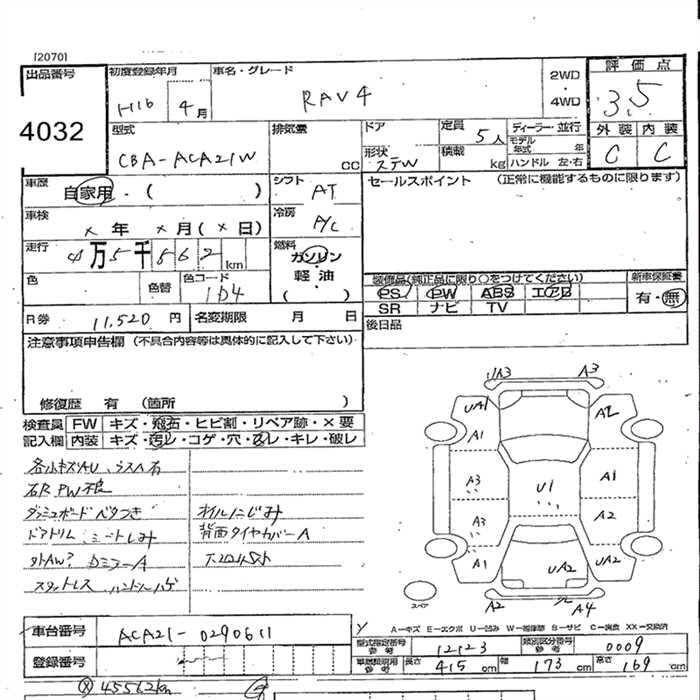 [2070]
出品番号 4032
初度登録年月 H16 4月
車名・グレード RAV4
2WD・4WD
評価点 3.5
型式 CBA-ACA21W
排気量 CC
ドア
形状 ステW
定員 5人
積載 kg
ディーラー・並行
モデル年式 年
ハンドル 左・右
外装 C
内装 C
車歴 自家用・( )
シフト AT
セールスポイント (正常に機能するものに限ります)
車検 × 年 × 月(×日)
冷房 A/C
走行 4万5千562km
燃料 ガソリン 軽油 ( )
色
色替
色コード 1D4
装備品(純正品に限り○をつけてください)
PS PW ABS エアB
SR ナビ TV
新車保証書
有・無
R券 11,520円
名変期限 月 日
後日品
注意事項申告欄 (不具合内容等は具体的に記入して下さい)
修復歴 有 (箇所 )
検査員 FW キズ・飛石・ヒビ割・リペア跡・×要
記入欄 内装 キズ・汚レ・コゲ・穴・スレ・キレ・破レ
各小キズAU
右R PW不良
ダッシュボードベタつき オイルにじみ
ドアトリム シートしみ 背面タイヤカバーA
ドアミラーA 下回りサビ
スタットレス ハンドルハゲ
A3 A3
UA1 A2
A1
A3 U1 A1
A3 A2
A1 UA2 UA2
スペア
A2 A4
A-キズ E-エクボ U-凹み W-補修跡 S-サビ C-腐食 XX-交換済
車台番号 ACA21-0290611
登録番号
型式指定番号参考 12123
類別区分番号参考 0009
車庫証明用参考 長さ 415cm 幅 173cm 高さ 169cm
45562km